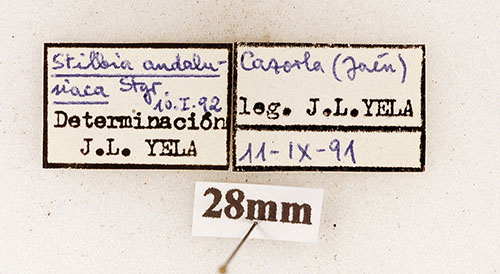 Stilbia andalu-
siaca Stgr.
10.I.92
Determinación
J.L. YELA
Cazorla (Jaén)
leg. J.L.YELA
11-IX-91
28mm